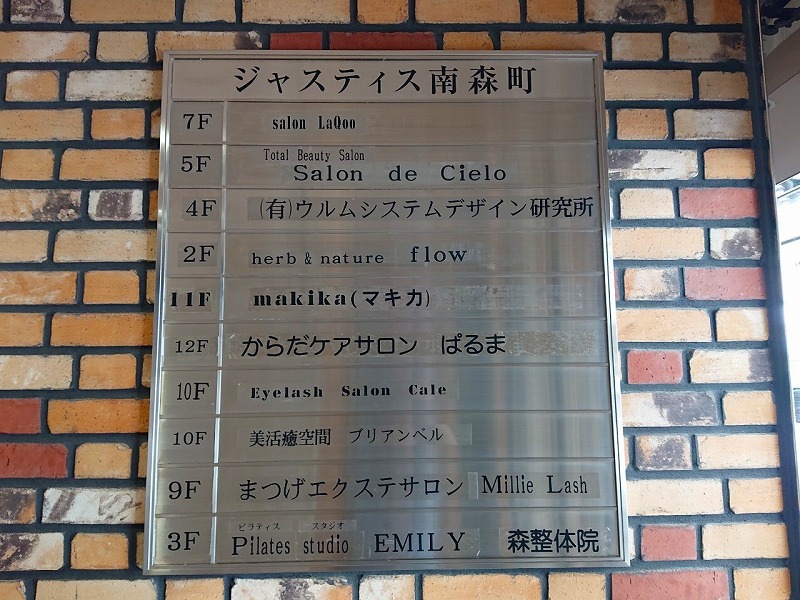 ジャスティス南森町
7F salon LaQoo
5F Total Beauty Salon
Salon de Cielo
4F (有)ウルムシステムデザイン研究所
2F herb & nature flow
11F makika(マキカ)
12F からだケアサロン ぱるま
10F Eyelash Salon Cale
10F 美活癒空間 ブリアンベル
9F まつげエクステサロン Millie Lash
ピラティス スタジオ
3F Pilates studio EMILY 森整体院